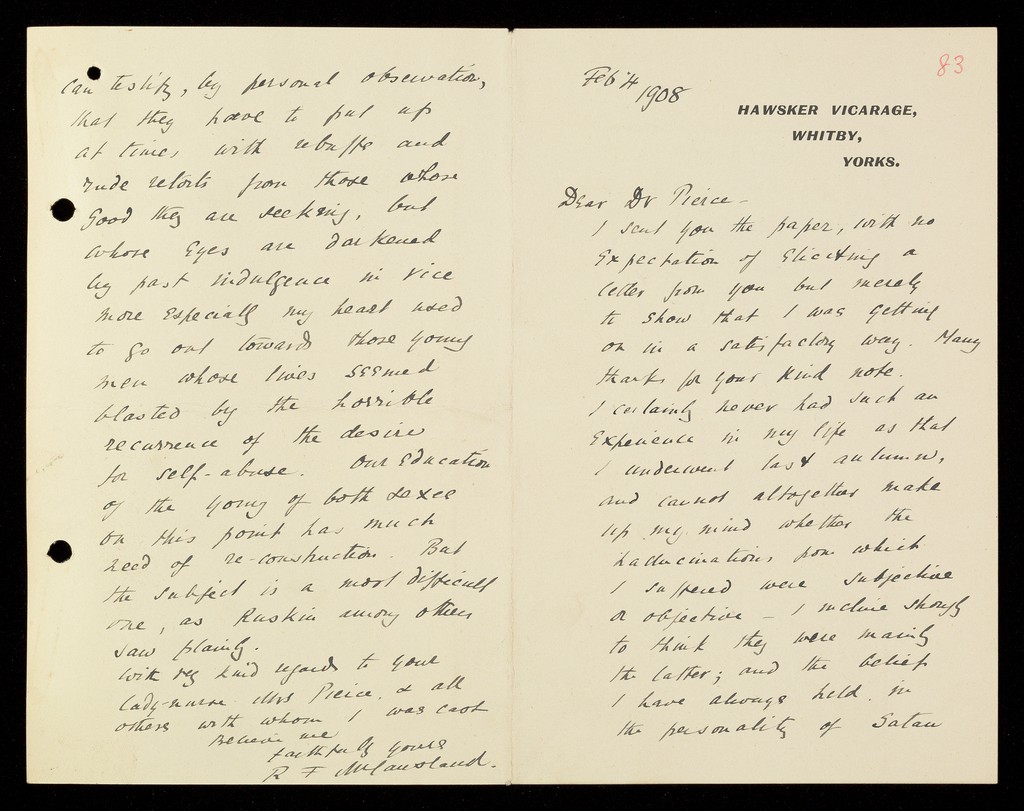 83
Feb 4
1908
HAWSKER VICARAGE,
WHITBY,
YORKS.
Dear Dr Pierce -
I sent you the paper, with no
Expectation of Eliciting a
letter from you but merely
to show that I was getting
on in a satisfactory way. Many
thanks for your kind note.
I certainly never had such an
Experience in my life as that
I underwent last autumn,
and cannot altogether make
up my mind whether the
hallucinations from which
I suffered were subjective
or objective - I incline strongly
to think they were mainly
the latter; and the belief
I have always held in
the personality of Satan
can testify, by personal observation,
that they have to put up
at times with rebuffs and
rude retorts from those whose
Good they are seeking, but
whose Eyes are darkened
by past indulgence in vice
more Especially my heart used
to go out towards those young
men whose lives seemed
blasted by the horrible
recurrence of the desire
for self-abuse. Our Education
of the young of both sexes
on this point has much
need of re-construction. But
the subject is a most difficult
one, as Ruskin among others
saw plainly.
With my kind regards to your
lady-nurse Mrs Pierce, & all
others with whom I was cast
Believe me
faithfully yours
R F McCausland.